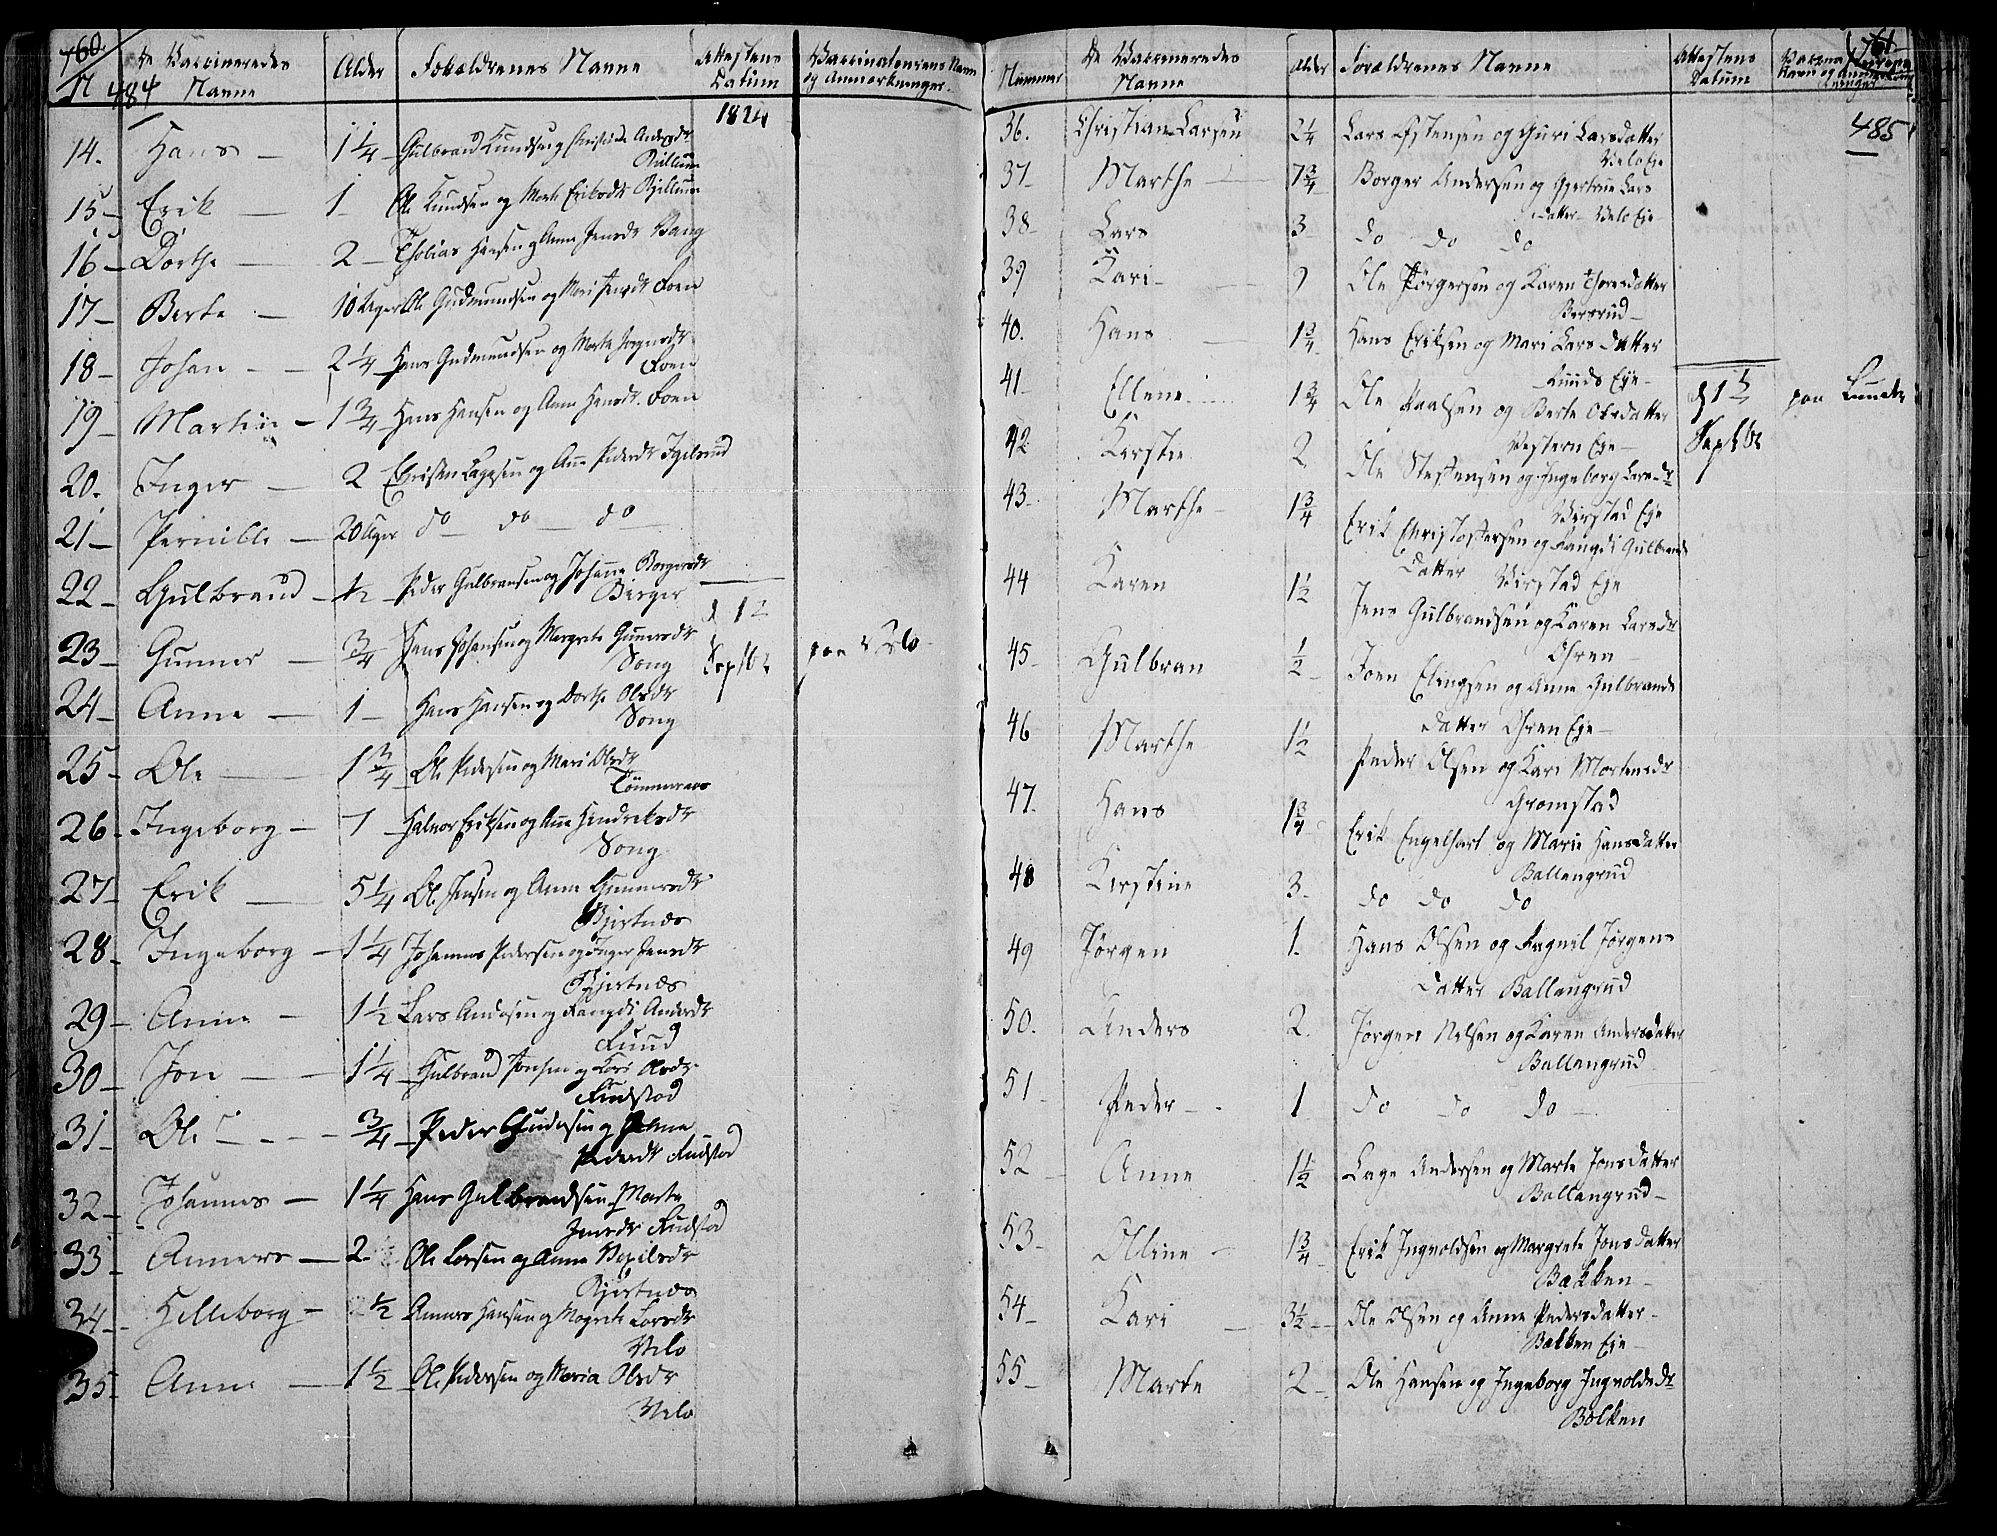 760.
N 484
De Vaccineredes
Nanne
Alder
Forældrenes Nanne
Attestens
Datum
Vaccinateurens Navn
og Anmærkninger.
1824
14. Hans — 1 1/4 Gulbrand Knudsen og Christine Andersdr
15 — Erik — 1 — Ole Knudsen og Marte Eriksdr
16 — Dorthe — 2 — Thobias Hansen og Anne Jensdr Bang
17 — Berte — 10 Uger Ole Gudmundsen og Mari Foen
18 — Johan — 2 1/4 Hans Gudmundsen og Marte
Foen
19 — Martin — 1 3/4 Hans Hansen og Anne Hansdr. Foen
20. Inger — 2 Christen og Anne Pedersdr
21 — Pernille — 20 Uger do — do — do
22 — Gulbrand — 1/2 Peder Gulbransen og Johanne Borgersdr
Berger
23 — Gunner — 3/4 Hans Johansen og Margrete Gunersdr
Song
d 12
Septbr
paa Velo
24 — Anne — 1 — Hans Hansen og Dorthe Olsdr
Song
25 — Ole — 1 3/4 Ole Pedersen og Mari Olsdr
26 — Ingeborg — 7 Halvor Eriksen og Anne Hendriksdr
Song
27 — Erik — 5 1/4 Ole Jensen og Anne Gunnersdr
Bjertnæs
28 — Ingeborg — 1 1/4 Johannes Pedersen og Inger Jensdr
Bjertnæs
29 — Anne — 1 1/2 Lars Andersen og Rangdi Andersdr
Ruud
30 — Jon — 1 1/4 Gulbrand Jonsen og Kari Olsdr
Rudstad
31 — Ole — 3/4 Peder og Anne
Pedersdr Rudstad
32 — Johannes — 1 1/4 Hans Gulbrandsen Marte
Jensdr Rudstad
33 — Anners — 2 Ole Larsen og Anne
Bjertnæs
34 — Helleborg — 1/2 Anners Hansen og Magrete Larsdr
Velo
35 — Anne — 1 1/2 Ole Pedersen og Maria Olsdr
Velo
Nummer
De Vaccineredes
Nanne
Alder
Forældrenes Nanne
Attestens
Datum
485
36. Christian Larsen 2 1/4 Lars Østensen og Guri Larsdatter
Velo Eje
37 — Marthe — 7 3/4 Borger Andersen og Gjertrue Lars
datter — Velo Eje
38 — Lars 3 do do do
39 Kari — 9 Ole Jørgersen og Karen Thoresdatter
Bersrud —
40. Hans — 1 3/4 Hans Eriksen og Mari Lars datter
Ruuds Eje —
41 — Ellene 1 3/4 Ole Paalsen og Berte Olsdatter
Vestern Eje —
paa Lunder
Septbr
42 Kerstie 2 Ole Stestensen og Ingeborg Larsdr
Virstad Eje
43 — Marthe — 1 3/4 Erik Christophersen og Rangdi Gulbrands
Datter Virstad Eje
44 Karen 1 1/2 Jens Gulbrandsen og Karen Larsdr
Ohren —
45 — Gulbran 1/2 Joen Elingsen og Anne Gulbrands
datter Ohren Eje —
46 Marthe 1 1/2 Peder Olsen og Kari Mortensdr
Gromstad
47. Hans 1 3/4 Erik Engelhart og Marie Hansdatter
Ballangrud
48 Kirstine 3. do do do
49 Jørgen 1. Hans Olsen og Ragnil Jørgens
datter Ballangrud
50. Anders 2. Jørgen Nelsen og Karen Andersdatter
Ballangrud
51 — Peder — 1 do do do —
52 Anne 1 1/2 Lage Andersen og Marte Jonsdatter
Ballangrud —
53 — Olline — 1 3/4 Erik Ingvoldsen og Margrete Jonsdatter
Bækken —
54 — Kari 3 1/2 — Ole Olsen og Anne Pedersdatter —
Bækken Eje —
55 — Marte 2 — Ole Hansen og Ingeborg Ingvoldsdr
Bækken